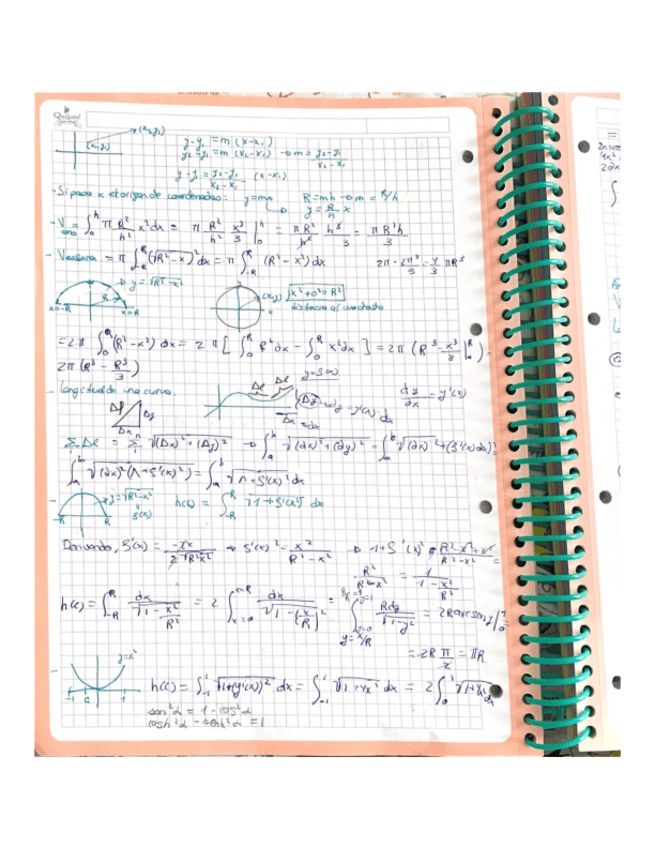 Quijote
(x₂,y₂)
(x₁,y₁)
y-y₁ = m (x-x₁)
y₂-y₁ = m (x₂-x₁) → m = (y₂-y₁)/(x₂-x₁)
y-y₁ = (y₂-y₁)/(x₂-x₁) (x-x₁)
- Si pasa x el origen de coordenadas: y=mx R=mh → m = R/h
y = R/h x
- V cono = ∫₀^h π R²/h² x² dx = π R²/h² x³/3 |₀^h = πR²/h² h³/3 = πR²h/3
- Vesfera = π ∫_{-R}^{R} (√R²-x²)² dx = π ∫_{-R}^{R} (R²-x²) dx
y = √R²-x²
x=-R x=R R
(x,y) x²+y²=R²
distancia al cuadrado
= 2π ∫₀^R (R²-x²) dx = 2π [∫₀^R R² dx - ∫₀^R x² dx] = 2π (R³ - x³/3 |₀^R) =
2π (R³ - R³/3)
- Longitud de una curva.
Δl Δy Δx
y=f(x)
Δl Δl
dy/dx = y'(x)
Σ Δl = Σ √(Δx)²+(Δy)² → ∫ₐᵇ √(dx)²+(dy)² = ∫ₐᵇ √(dx)²+(f'(x)dx)²
∫ₐᵇ √(dx)²(1+f'(x)²) = ∫ₐᵇ √1+f'(x)² dx
- y=√R²-x²
f(x)
-R R
h(c) = ∫_{-R}^{R} √1+f'(x)² dx
Derivando, f'(x) = -2x/2√R²-x² → f'(x)² = x²/(R²-x²) → 1+f'(x)² = (R²-x²+x²)/(R²-x²) =
R²/(R²-x²) = 1/(1-x²/R²)
h(c) = ∫_{-R}^{R} dx/√1-x²/R² = 2 ∫_{x=0}^{x=R} dx/√1-(x/R)² = ∫_{y=0}^{y=1} R dy/√1-y² = 2R arcsen y |₀¹ =
y=x/R
= 2R π/2 = πR
- y=x²
-1 C 1
h(c) = ∫₋₁¹ √1+(y'(x))² dx = ∫₋₁¹ √1+4x² dx = 2∫₀¹ √1+4x² dx
sen²α = 1-cos²α
cosh²α - senh²α = 1